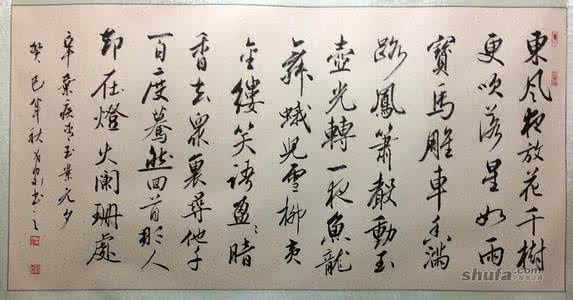 東风夜放花千樹
更吹落星如雨
寶馬雕車香滿
路鳳簫聲動玉
壺光轉一夜魚龍
舞蛾兒雪柳黃
金縷笑語盈〻暗
香去眾裏尋他千
百度驀然回首那人
却在燈火闌珊處
辛棄疾青玉案元夕
癸巳年秋書
shufa.com